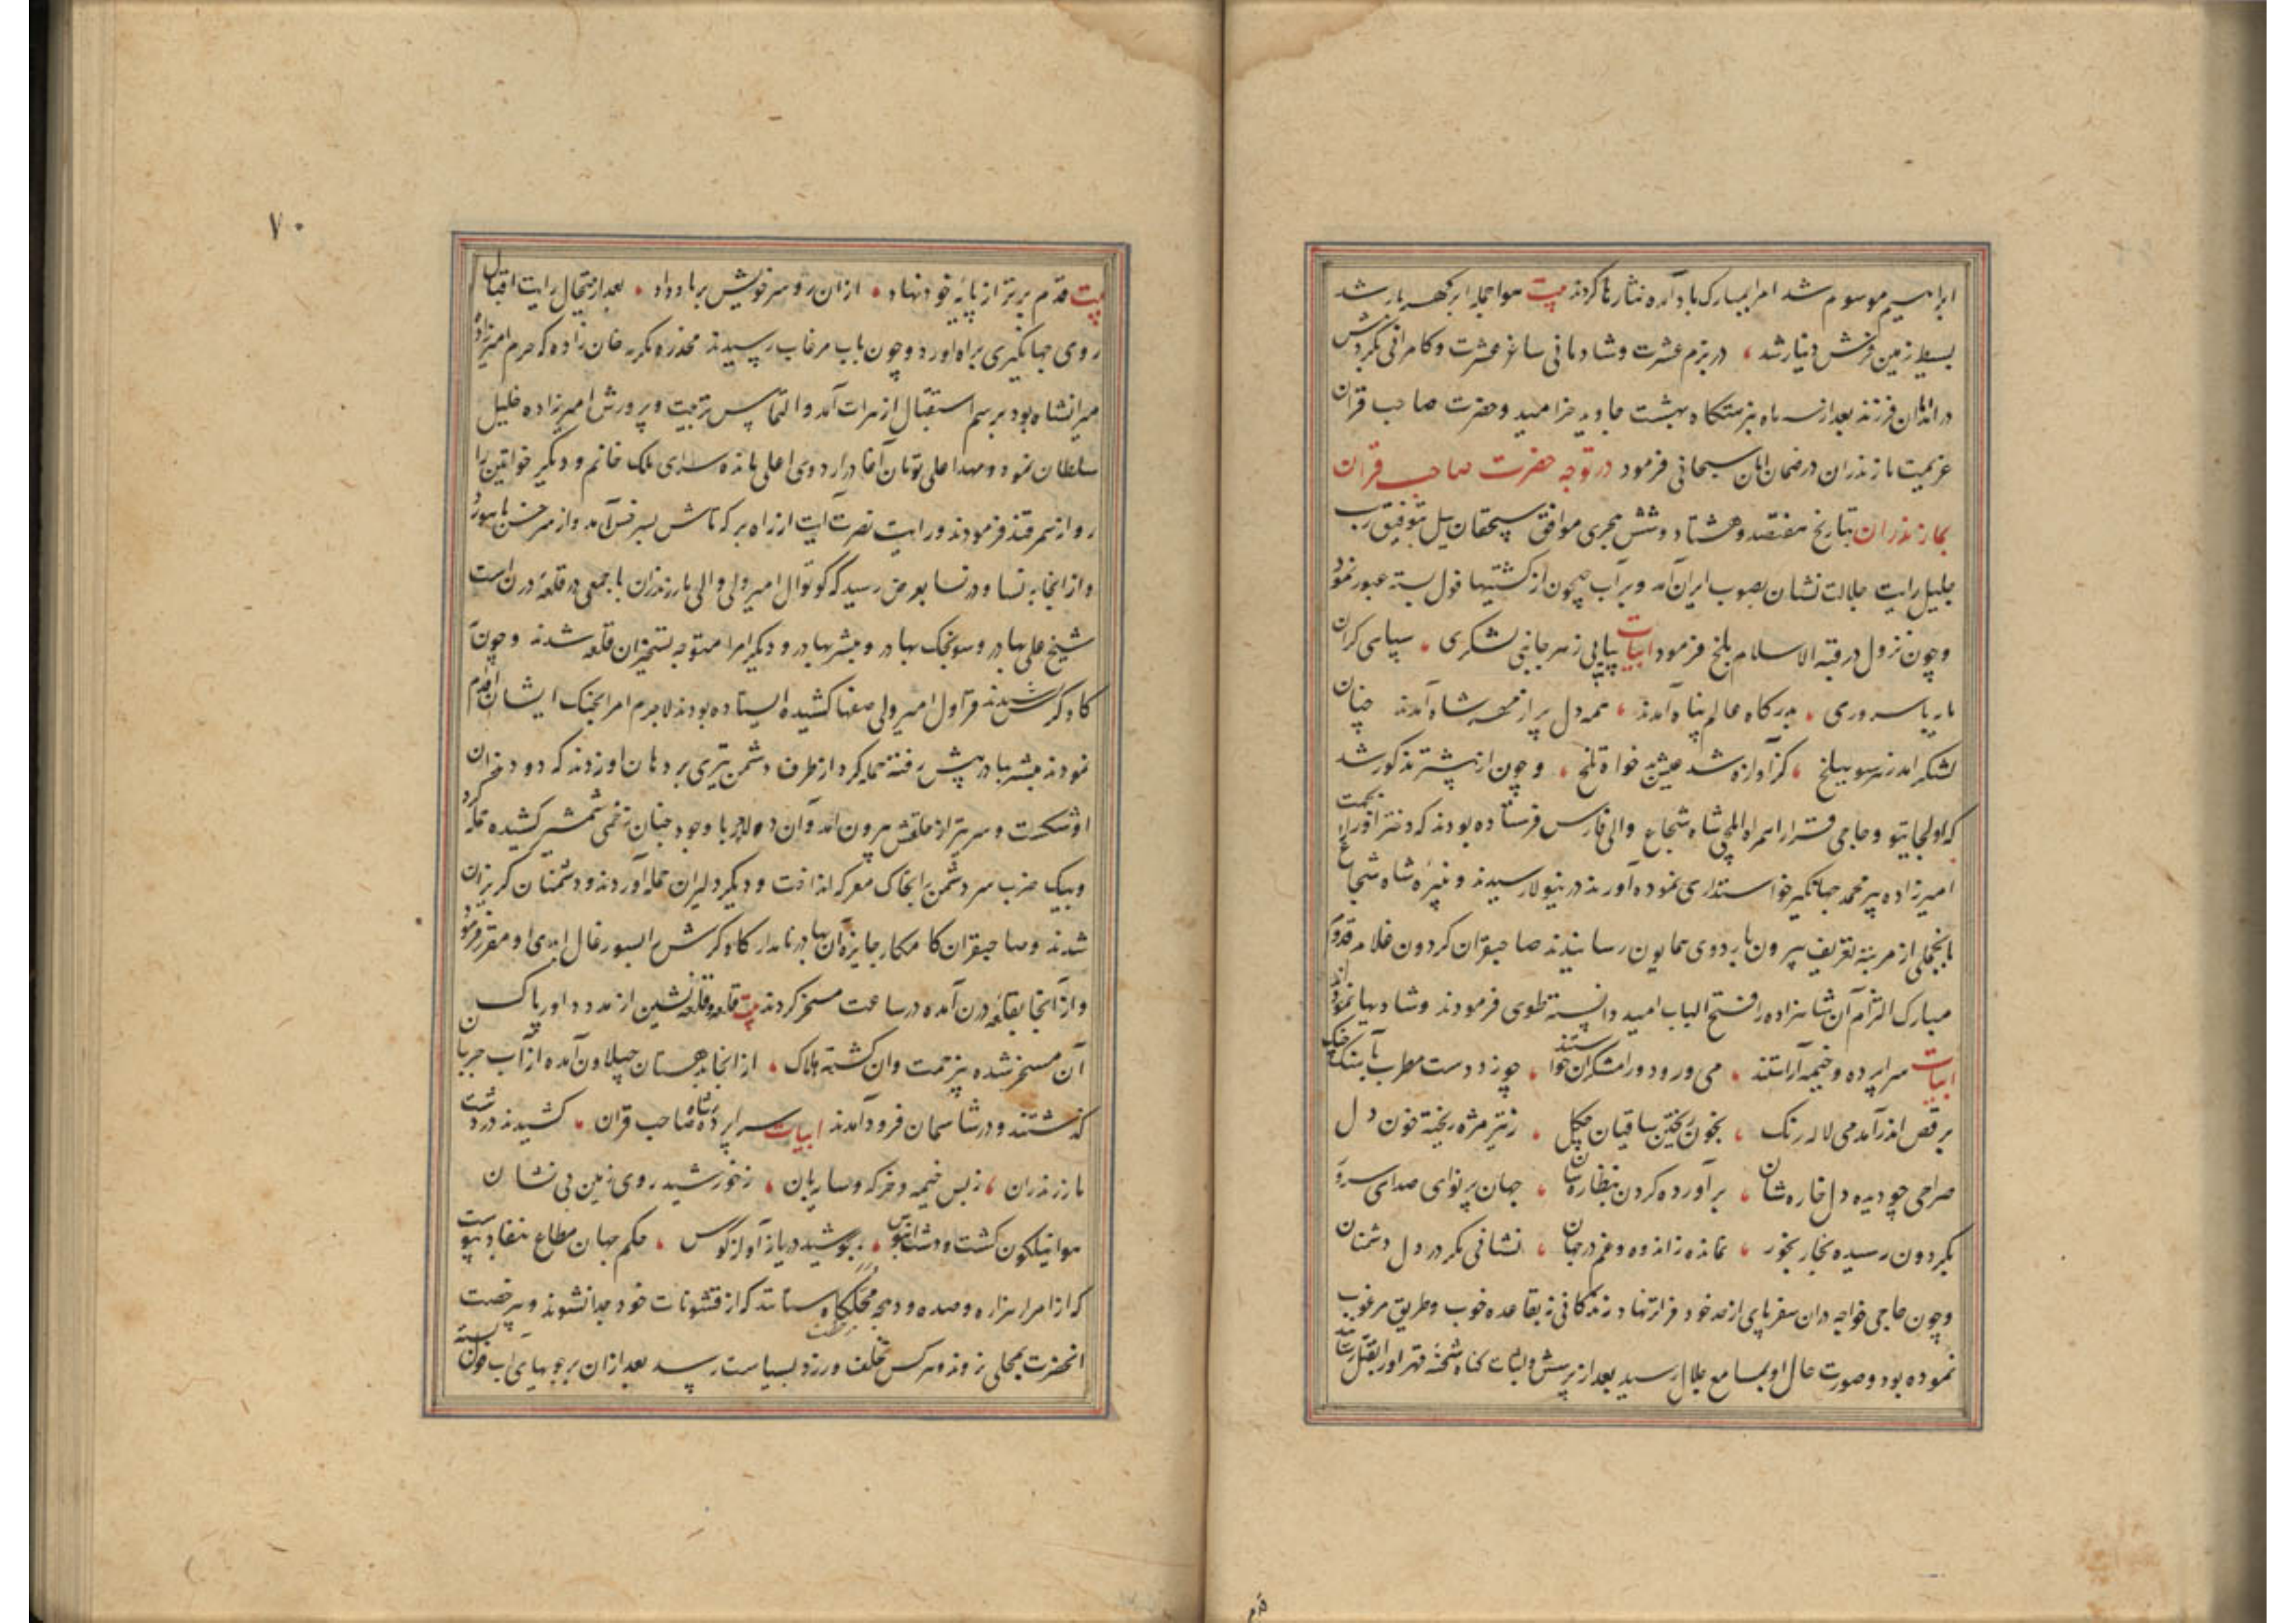 ابراهیم موسوم شد امرا بمبارک باد آمده نثارها کردند بیت هوا جمله ابر کهربار شد
بسیط زمین فرش دینار شد در بزم عشرت و شادمانی ساغر عشرت و کامرانی بگردش
در اثنا آن فرزند بعد از سه ماه بنزهتکاه بهشت جاوید خرامید و حضرت صاحب قران
عزیمت مازندران در ضمان امان سبحانی فرمود در توجه حضرت صاحب قران
بمازندران بتاریخ هفتصد و هشتاد و شش هجری موافق سیچقان ییل بتوفیق رب
جلیل رایت جلالت نشان بصوب ایران آمد و بر آب جیحون از کشتیها قول بسته عبور نمود
و چون نزول در قبة الاسلام بلخ فرمود ابیات پیاپی زهر جانبی لشکری سپاهی کران
با سروری بدرکاه عالم پناه آمدند همه دل پر از مهر شاه آمدند چنان
لشکر آمد زهر سو ببلخ کز آوازه شد عیش بدخواه تلخ و چون از پیشتر مذکور شد
که اولجایتو و حاجی خواجه را همراه ایلچی شاه شجاع والی فارس فرستاده بودند که دختر او را بجهت
امیرزاده پیر محمد جهانکیر خواستداری نموده آورند درینولا رسیدند و نبیره شاه شجاع
با تجملی از مرتبه تعریف بیرون باردوی همایون رسانیدند صاحبقران کردون غلام قدوم
مبارک آن شاهزاده را فتح الباب امید دانسته طوی فرمودند و شادیها نمودند
ابیات سراپرده و خیمه آراستند می و رود و رامشکران خواستند چو زد دست مطرب بآهنک چنک
برقص اندر آمد می لاله رنک بخون ریختن ساقیان چکل ز تیر مژه ریخته خون دل
صراحی چو دیده دل خاره شان برآورده کردن بنظاره شان جهان پر نوای صدای سرود
بکردون رسیده بخار بخور نمانده ز اندوه و غم در جهان نشانی مکر در دل دشمنان
و چون حاجی خواجه در آن سفر پای از حد خود فراتر نهاد و زندکانی نه بقاعده خوب و طریق مرغوب
نموده بود و صورت حال او بمسامع جلال رسید بعد از پرسش و اثبات کناه شحنه قهر او را بقتل رسانید
قدم
۷۰
بیت قدم برتر از پایه خود نهاد از آن رو سر خویش بر باد داد بعد از تحال رایت اقبال
روی جهانکیری براه آورد و چون بآب مرغاب رسیدند مخدره مکرمه خان زاده که حرم امیرزاده
میرانشاه بود برسم استقبال از هرات آمد و التماس تربیت و پرورش امیرزاده خلیل
سلطان نمود و مهد اعلی تومان آغا در اردوی اعلی مانده سرای ملک خانم و دیکر خواتین را
روانه سمرقند فرمودند و رایت نصرت آیت از راه برکه تاش بسرخس آمد و از سرخس باببورد
و از انجا به نسا و در نسا بعرض رسید که کوتوال امیر ولی والی مازندران با جمعی در قلعه درن است
شیخ علی بهادر و سونجک بهادر و مبشر بهادر و دیکر امرا متوجه تسخیر آن قلعه شدند و چون به
کاوکرش رسیدند قراول امیر ولی صفها کشیده ایستاده بودند لاجرم امرا بجنک ایشان اقدام
نمودند مبشر بهادر پیش رفته حمله کرد از طرف دشمن تیری بر دهان او زدند که دو دندان
او شکست و سر تیر از حلقش بیرون آمد و آن دلاور با وجود چنان زخمی شمشیر کشیده حمله کرد
و بیک ضرب سر دشمن را بخاک معرکه انداخت و دیکر دلیران حمله آوردند و دشمنان کریزان
شدند و صاحبقران کامکار جایزه آن بهادر نامدار کاوکرش را سیورغال ابدی او مقرر فرمود
و از آنجا بقلعه درن آمده در ساعت مسخر کردند بیت قلعه و قلعه نشین از مدد داور پاک
آن مسخر شده بیزحمت و آن کشته هلاک از انجا بدهستان جیلاون آمده از آب جرجان
کذشتند و در شاسمان فرود آمدند ابیات سراپرده شاه صاحب قران کشیدند در دشت
مازندران ز بس خیمه و خرکه و سایبان ز خورشید روی زمین بی نشان
هوا نیلکون کشت و دشت آبنوس بجوشید دریا ز آواز کوس حکم جهان مطاع بنفاذ پیوست
که از امراء هزاره و صده و دهجه مجلکا ستانند که از قشونات خود جدا نشوند و بی رخصت
آنحضرت بمحلی نروند و هر کس تخلف ورزد بسیاست رسد بعد از آن بر جویهای آب قول بسته